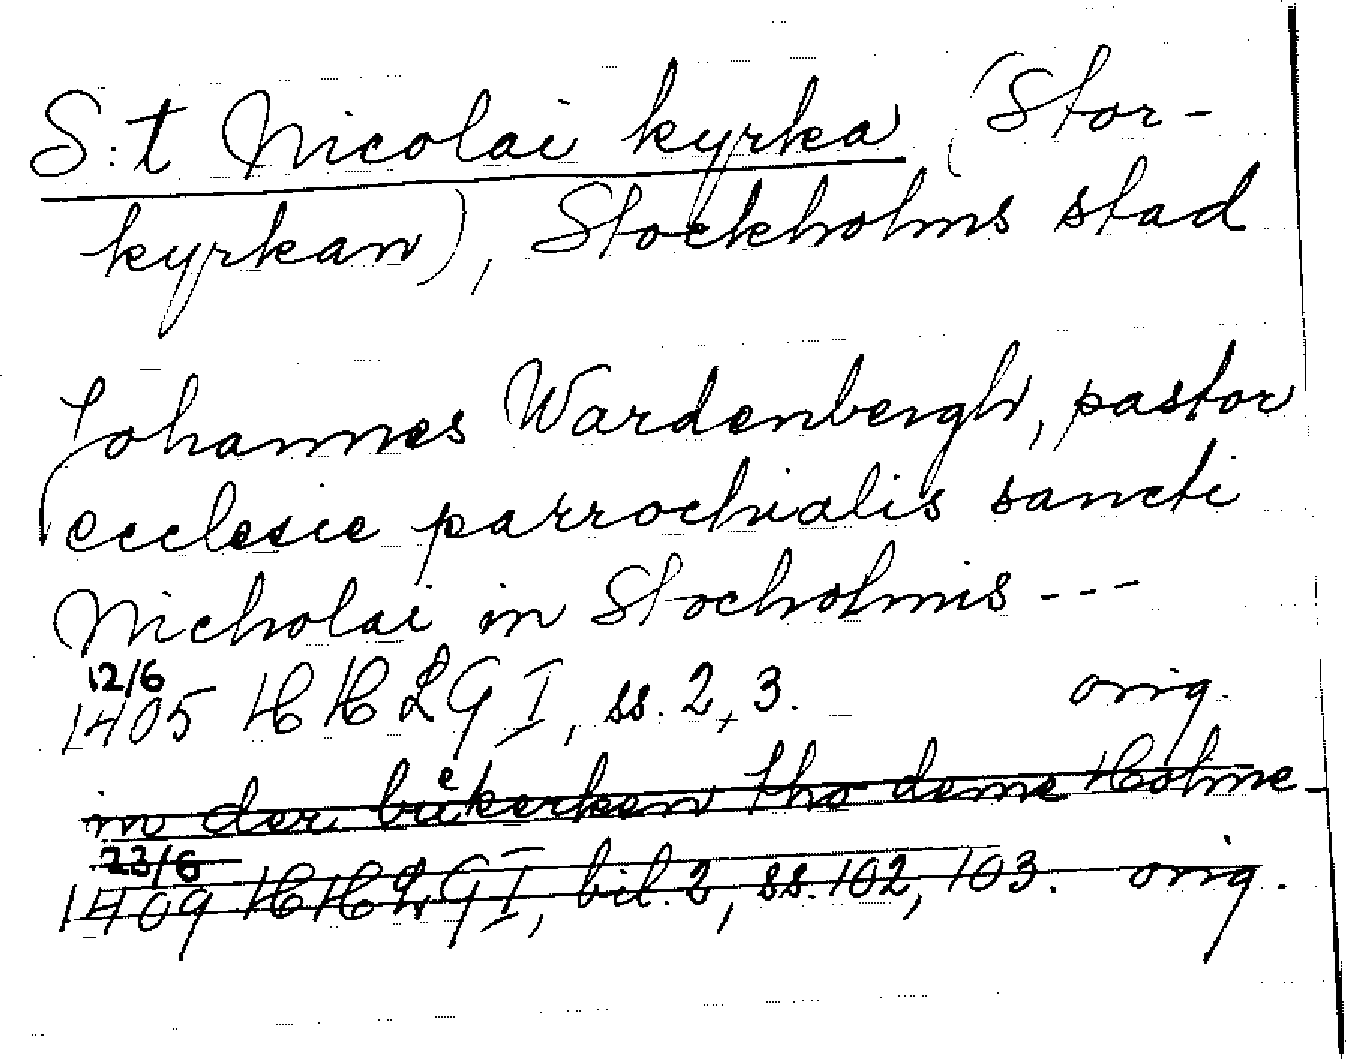 S:t Nicolai kyrka (Stor-
kyrkan), Stockholms stad
Johannes Wardenbergh, pastor
ecclesie parrochialis sancti
Nicholai in Stocholmis ---
12/6
1405 HHLG I, ss. 2, 3. orig.
in der bukerken tho deme Holme
23/6
1409 HHLG I, bil. 2, ss. 102, 103. orig.